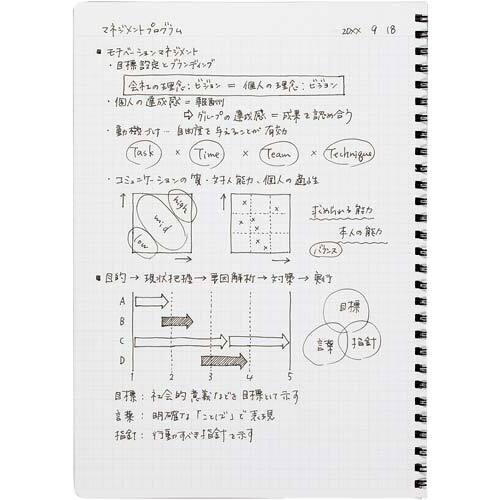 マネジメントプログラム 20XX 9 18
■ モチベーションマネジメント
・目標設定とブランディング
会社の理念:ビジョン = 個人の理念:ビジョン
・個人の達成感 = 報酬
⇨ グループの達成感 = 成果を認め合う
・動機づけ… 自由度を与えることが有効
Task × Time × Team × Technique
・コミュニケーションの質・対人能力、個人の適性
high
mid
low
x x x x x x x
求められる能力
本人の能力
バランス
■ 目的 → 現状把握 → 要因解析 → 対策 → 実行
A
B
C
D
1 2 3 4 5
目標
言葉 指針
目標: 社会的意義などを目標として示す
言葉: 明確な「ことば」で表現
指針: 行動すべき指針を示す